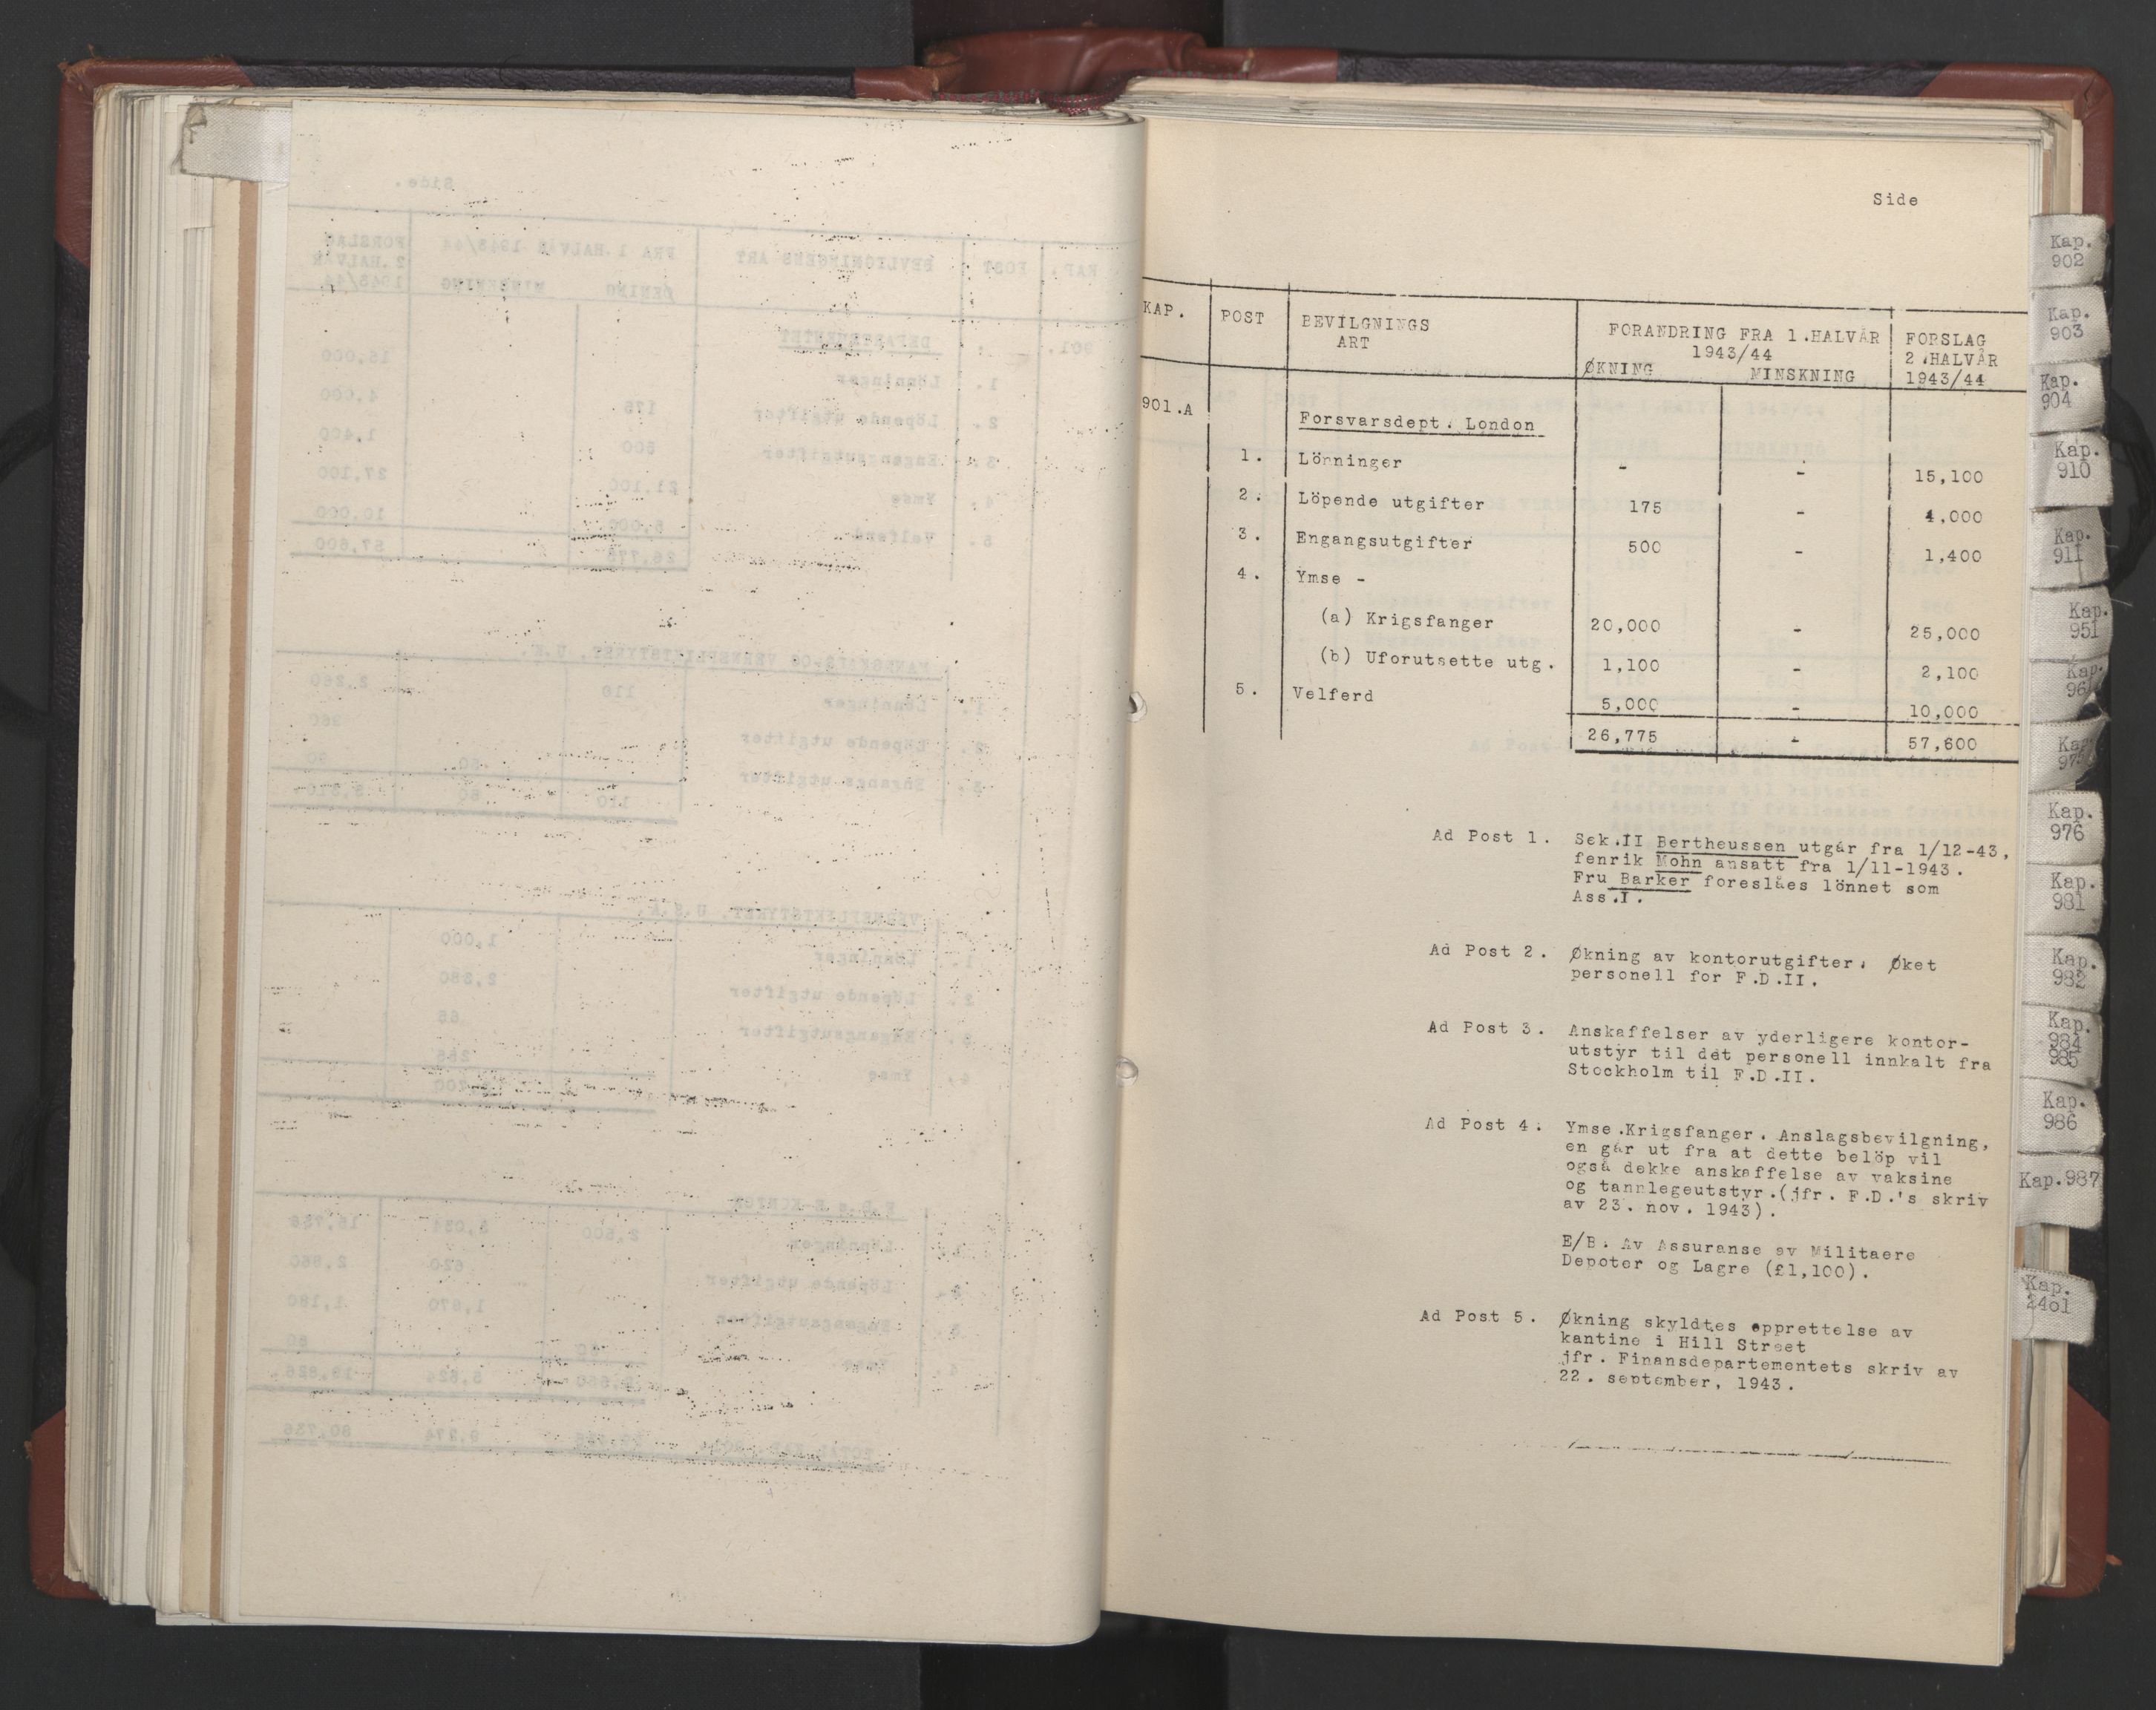 Side
KAP. POST BEVILGNINGS ART FORANDRING FRA 1.HALVÅR 1943/44 FORSLAG 2.HALVÅR 1943/44
ØKNING MINSKNING
901.A Forsvarsdept. London
1. Lönninger - - 15,100
2. Löpende utgifter 175 - 4,000
3. Engangsutgifter 500 - 1,400
4. Ymse -
(a) Krigsfanger 20,000 - 25,000
(b) Uforutsette utg. 1,100 - 2,100
5. Velferd 5,000 - 10,000
26,775 - 57,600
Ad Post 1. Sek.II Bertheussen utgår fra 1/12-43,
fenrik Mohn ansatt fra 1/11-1943.
Fru Barker foreslåes lönnet som
Ass.I.
Ad Post 2. Økning av kontorutgifter. Øket
personell for F.D.II.
Ad Post 3. Anskaffelser av yderligere kontor-
utstyr til det personell innkalt fra
Stockholm til F.D.II.
Ad Post 4. Ymse.Krigsfanger. Anslagsbevilgning,
en går ut fra at dette belöp vil
også dekke anskaffelse av vaksine
og tannlegeutstyr.(jfr. F.D.'s skriv
av 23. nov. 1943).
E/B. Av Assuranse av Militaere
Depoter og Lagre (£1,100).
Ad Post 5. Økning skyldtes opprettelse av
kantine i Hill Street
jfr. Finansdepartementets skriv av
22. september, 1943.
Kap.
902
Kap.
903
Kap.
904
Kap.
910
Kap.
911
Kap.
951
Kap.
Kap.
976
Kap.
981
Kap.
982
Kap.
984
985
Kap.
986
Kap.987
Kap.
2401